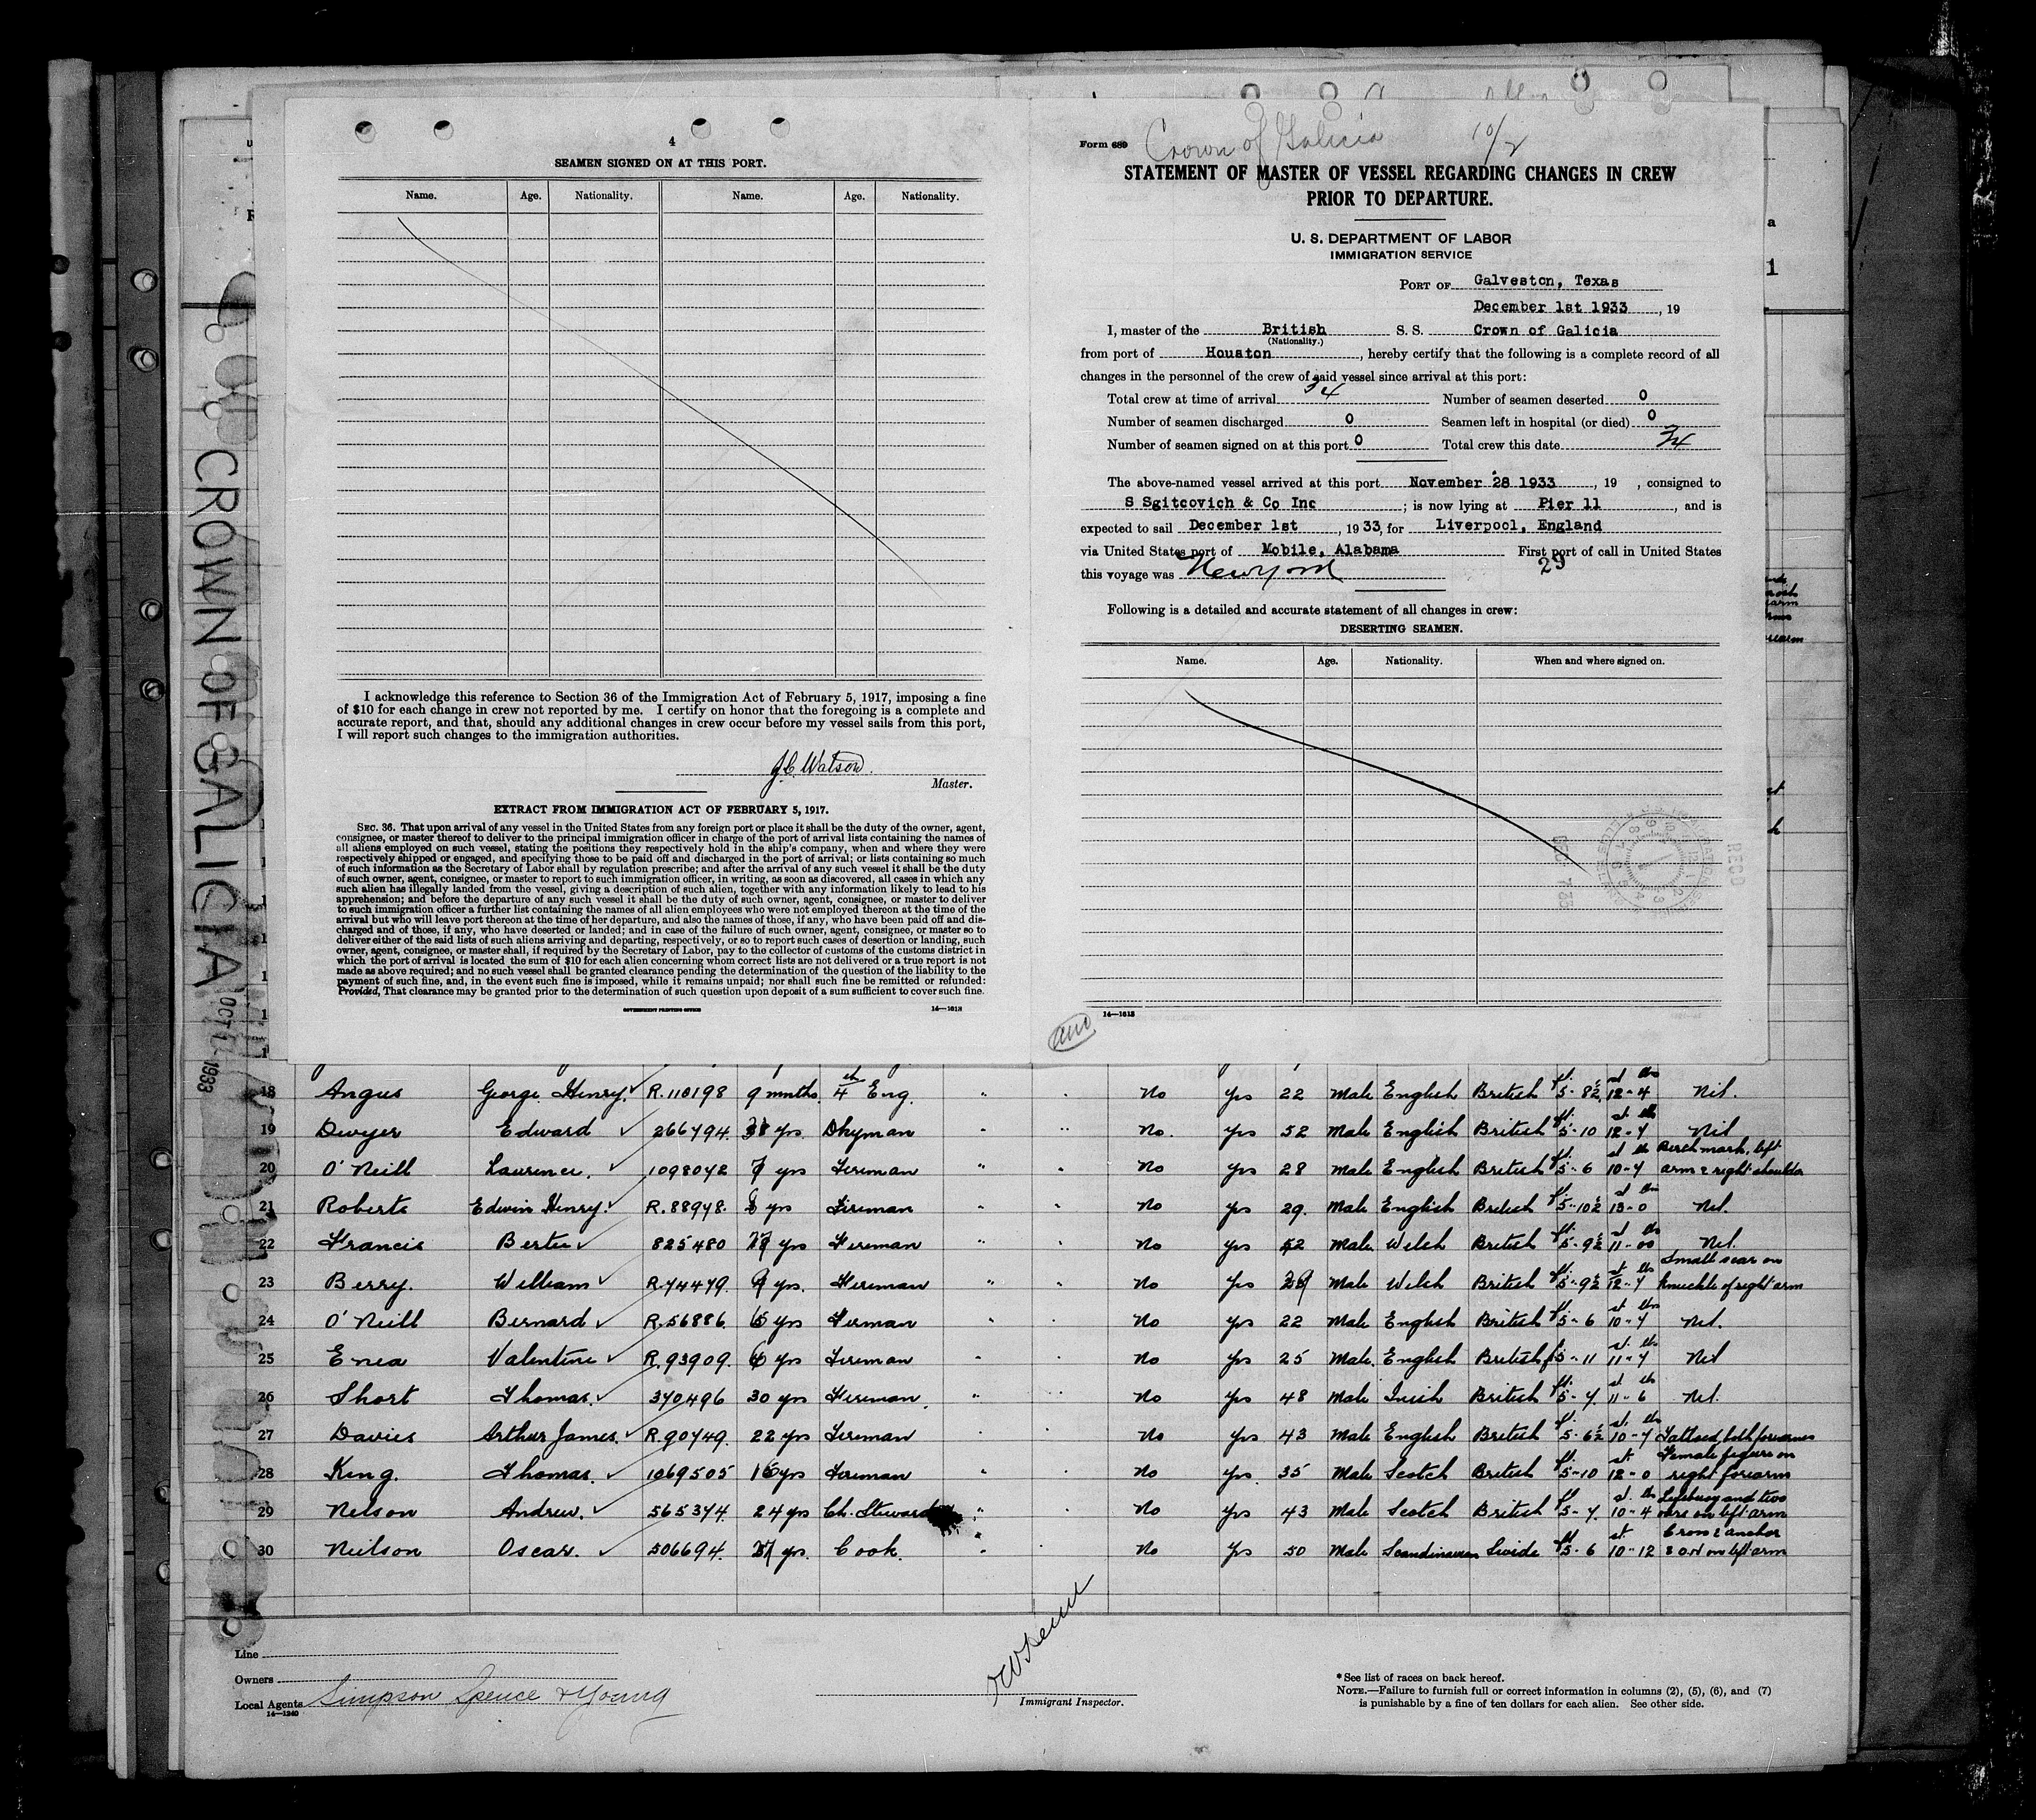 CROWN OF GALICIA OCT 1933
4
SEAMEN SIGNED ON AT THIS PORT.
Name. Age. Nationality. Name. Age. Nationality.
I acknowledge this reference to Section 36 of the Immigration Act of February 5, 1917, imposing a fine
of $10 for each change in crew not reported by me. I certify on honor that the foregoing is a complete and
accurate report, and that, should any additional changes in crew occur before my vessel sails from this port,
I will report such changes to the immigration authorities.
J.C. Watson.
Master.
EXTRACT FROM IMMIGRATION ACT OF FEBRUARY 5, 1917.
SEC. 36. That upon arrival of any vessel in the United States from any foreign port or place it shall be the duty of the owner, agent,
consignee, or master thereof to deliver to the principal immigration officer in charge of the port of arrival lists containing the names of
all aliens employed on such vessel, stating the positions they respectively hold in the ship's company, when and where they were
respectively shipped or engaged, and specifying those to be paid off and discharged in the port of arrival; or lists containing so much
of such information as the Secretary of Labor shall by regulation prescribe; and after the arrival of any such vessel it shall be the duty
of such owner, agent, consignee, or master to report to such immigration officer, in writing, as soon as discovered, all cases in which any
such alien has illegally landed from the vessel, giving a description of such alien, together with any information likely to lead to his
apprehension; and before the departure of any such vessel it shall be the duty of such owner, agent, consignee, or master to deliver
to such immigration officer a further list containing the names of all alien employees who were not employed thereon at the time of the
arrival but who will leave port thereon at the time of her departure, and also the names of those, if any, who have been paid off and dis-
charged and of those, if any, who have deserted or landed; and in case of the failure of such owner, agent, consignee, or master so to
deliver either of the said lists of such aliens arriving and departing, respectively, or so to report such cases of desertion or landing, such
owner, agent, consignee, or master shall, if required by the Secretary of Labor, pay to the collector of customs of the customs district in
which the port of arrival is located the sum of $10 for each alien concerning whom correct lists are not delivered or a true report is not
made as above required; and no such vessel shall be granted clearance pending the determination of the question of the liability to the
payment of such fine, and, in the event such fine is imposed, while it remains unpaid; nor shall such fine be remitted or refunded:
Provided, That clearance may be granted prior to the determination of such question upon deposit of a sum sufficient to cover such fine.
GOVERNMENT PRINTING OFFICE 14—1613
Form 689 Crown of Galicia 10/2
STATEMENT OF MASTER OF VESSEL REGARDING CHANGES IN CREW
PRIOR TO DEPARTURE.
U. S. DEPARTMENT OF LABOR
IMMIGRATION SERVICE
PORT OF Galveston, Texas
December 1st 1933, 19
I, master of the British S. S. Crown of Galicia
(Nationality.)
from port of Houston, hereby certify that the following is a complete record of all
changes in the personnel of the crew of said vessel since arrival at this port:
Total crew at time of arrival 34 Number of seamen deserted 0
Number of seamen discharged 0 Seamen left in hospital (or died) 0
Number of seamen signed on at this port 0 Total crew this date 34
The above-named vessel arrived at this port November 28 1933, 19 , consigned to
S Sgitcovich & Co Inc ; is now lying at Pier 11, and is
expected to sail December 1st, 1933, for Liverpool, England
via United States port of Mobile, Alabama First port of call in United States
this voyage was New York 29
Following is a detailed and accurate statement of all changes in crew:
DESERTING SEAMEN.
Name. Age. Nationality. When and where signed on.
REC'D
14—1613
18 Angus George Henry R.110198 9 mnths 4th Eng. " " No Yes 22 Male English British ft. 5-8½ st lbs 12-4 Nil.
19 Dwyer Edward 266794 yrs Dkyman " No. Yes 52 Male English British ft. 5-10 st lbs 12-7 Nil
20 O'Neill Laurence. 1098042 7 yrs Fireman " " No Yes 28 Male English British ft. 5-6 st lbs 10-7 Birch mark, left arm & right shoulder
21 Roberts Edwin Henry R.88948. yrs Fireman " " No Yes 29. Male English British ft. 5-10½ st lbs 13-0 Nil.
22 Francis Bertie 825480 yrs Fireman " " No Yes 52 Male Welsh British ft. 5-9½ st lbs 11-00 Nil.
23 Berry. William R.74479. 9 yrs. Fireman " " No Yes Male Welsh British ft. 5-9½ st lbs 12-7 Small scar on knuckle of right arm
24 O'Neill Bernard R.56886 yrs Fireman " " No Yes 22 Male English British ft. 5-6 st lbs 10-7 Nil.
25 Enea Valentine R.93909. yrs Fireman " " No Yes 25 Male English British ft. 5-11 st lbs 11-7 Nil
26 Short Thomas. 370496 30 yrs Fireman " " No Yes 48 Male Irish British ft. 5-7. st lbs 11-6 Nil.
27 Davies Arthur James. R.90749. 22 yrs Fireman " " No Yes 43 Male English British ft. 5-6½ st. lbs 10-7 Tattooed both forearms
28 King. Thomas. 1069505 16 yrs Fireman " " No Yes. 35 Male Scotch British ft. 5-10 st 12-0 Female figure on right forearm
29 Nelson Andrew. 565374. 24 yrs Ch. Steward " " No Yes 43 Male Scotch British ft 5-7. st. lbs 10-4 Lifebuoy and two oars on left arm
30 Neilson Oscar. 506694. yrs. Cook. " " No Yes 50 Male Scandinavian Swide ft 5-6 st 10-12 Cross & anchor on left arm
Line
Owners
Local Agents Simpson Spence & Young
14—1240
Immigrant Inspector.
*See list of races on back hereof.
NOTE.—Failure to furnish full or correct information in columns (2), (5), (6), and (7)
is punishable by a fine of ten dollars for each alien. See other side.